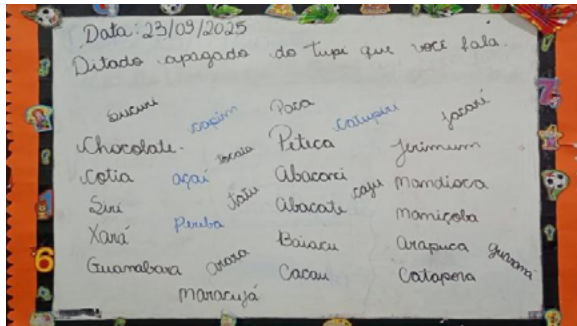 Data: 23/09/2025
Ditado apagado do tupi que você fala.
Sucuri capim Paca catupiri jacaré
Chocolate. tocaia Peteca Jerimum
Cotia açaí abacaxi caju Mandioca
Siri tatu abacate Maniçoba
Xará Pereba Baiacu arapuca guaraná
Guanabara arara Cacau Catapora
Maracujá